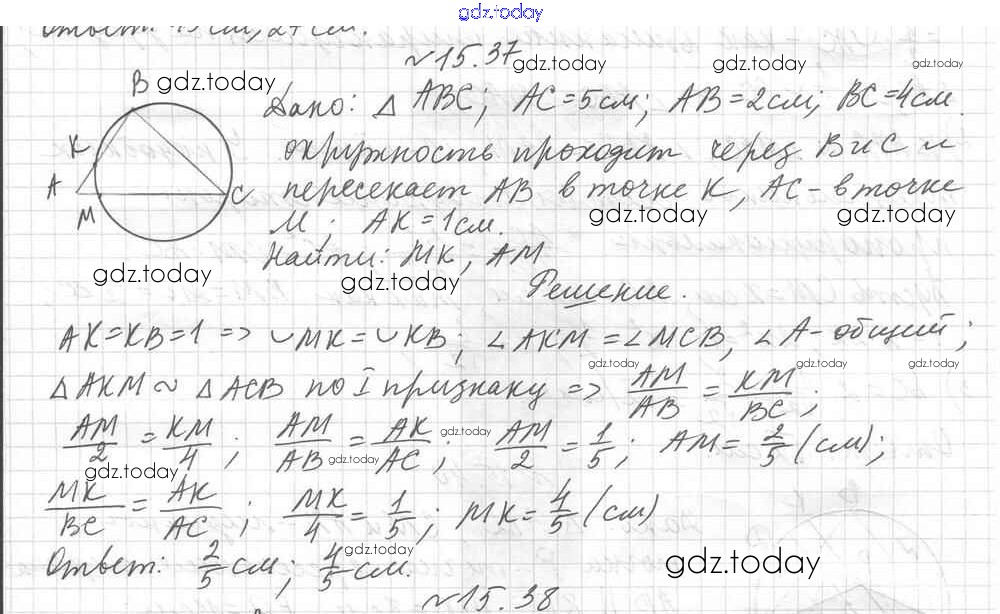 gdz.today
Ответ: 15 см, 24 см.
№15.37
gdz.today gdz.today gdz.today
B gdz.today
Дано: △ ABC; AC=5см; AB=2см; BC=4см.
K окружность проходит через B и C и
A C пересекает AB в точке K, AC - в точке
M gdz.today gdz.today
M; AK=1см.
gdz.today Найти: MK, AM
gdz.today
Решение.
AK=KB=1 => ∪MK=∪KB; ∠AKM=∠MCB, ∠A-общий;
gdz.today gdz.today gdz.today
△AKM ~ △ACB по I признаку => AM/AB = KM/BC;
AM/2 = KM/4; AM/AB = AK/AC; AM/2 = 1/5; AM = 2/5 (см);
gdz.today gdz.today gdz.today
MK/BC = AK/AC; MK/4 = 1/5; MK = 4/5 (см)
gdz.today
Ответ: 2/5 см, 4/5 см.
gdz.today
№15.38